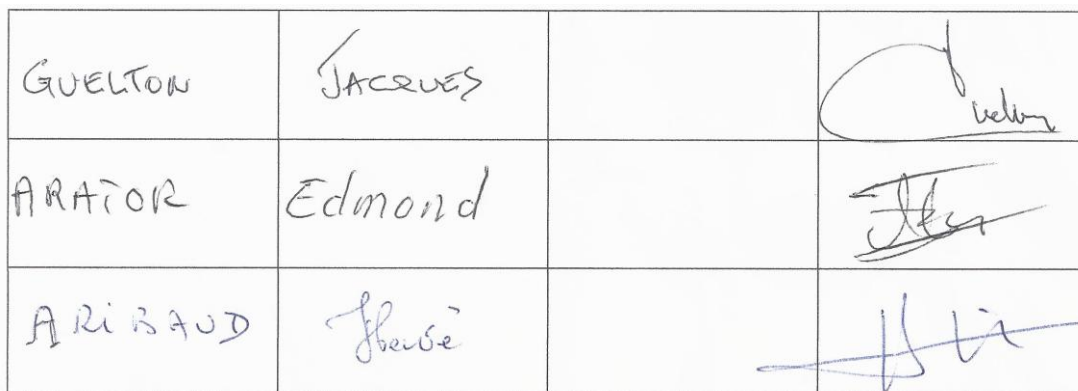 GUELTON JACQUES
ARATOR Edmond
ARiBAUD Hervé